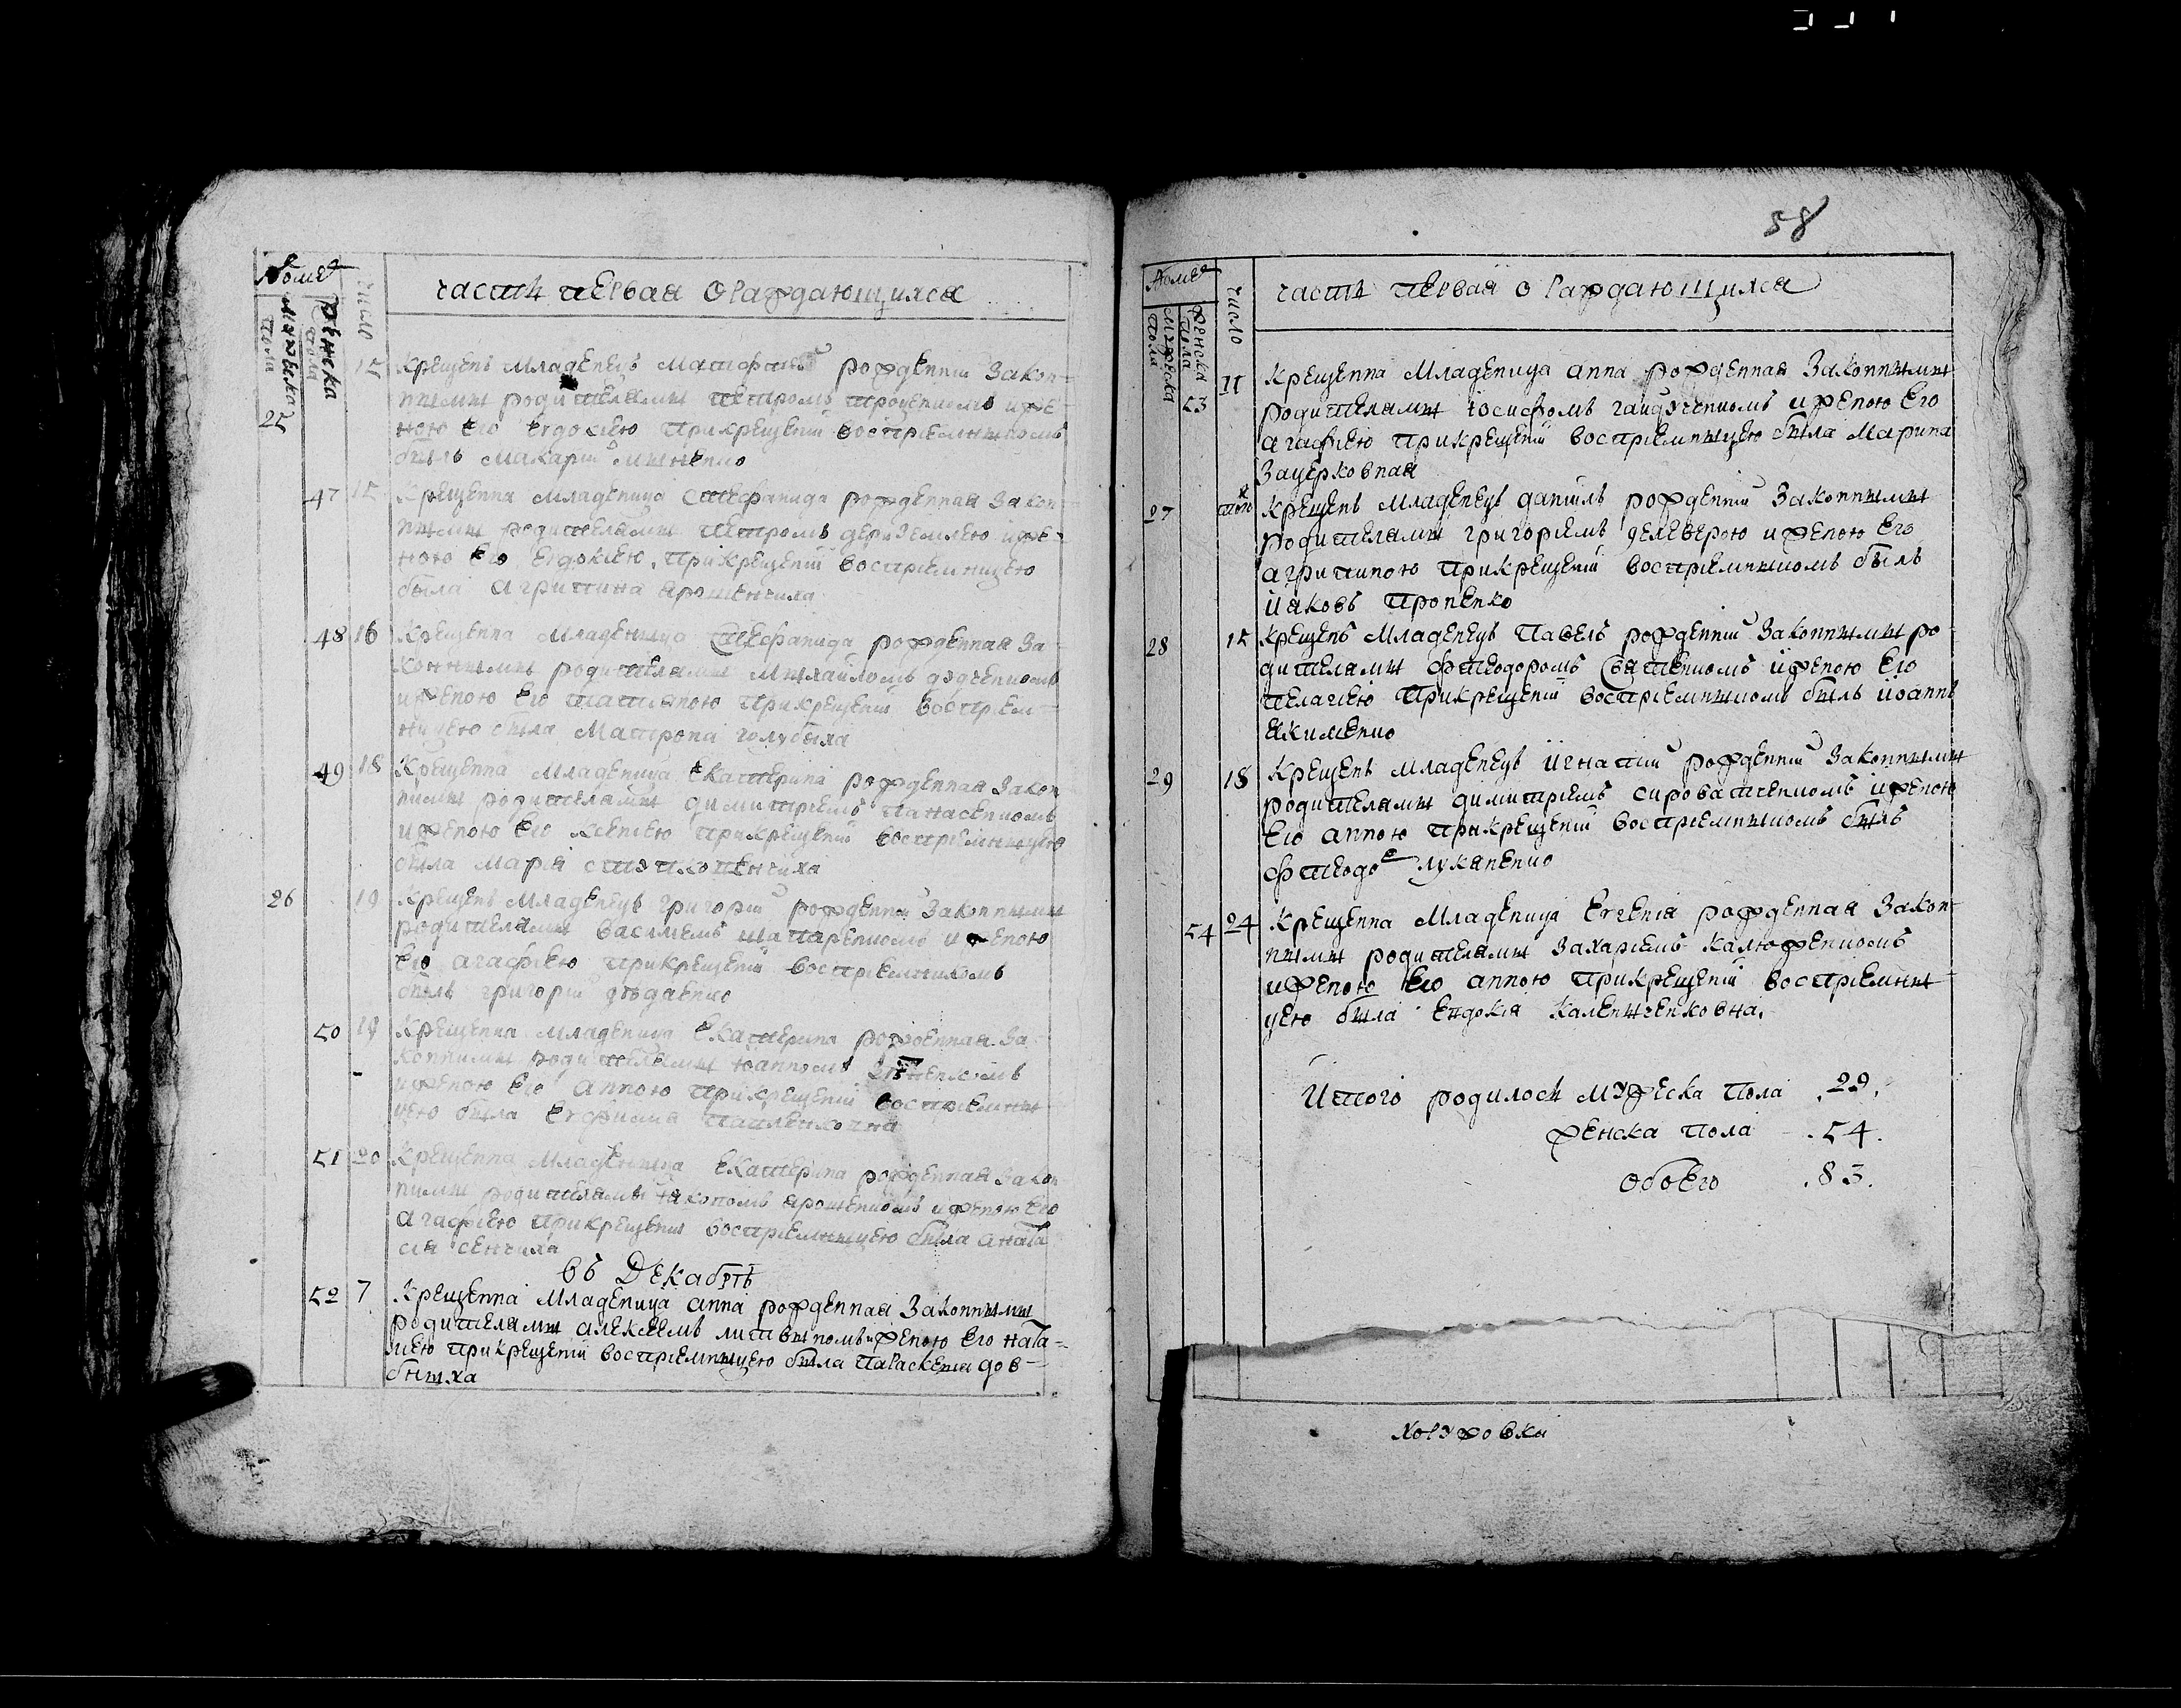 58
Номеръ
мужеска пола
женска пола
число
часть первая о раждающихся
25
15
Крещенъ младенецъ рожденній закон-
ными родителями Петромъ Троценкомъ и же-
ною его Евдокіею прикрещеніи воспріемникомъ
былъ Макарій
47
15
Крещенна младеница Стефанида рожденная закон-
ными родителями Петромъ Дериземлею и же-
ною его Евдокіею, прикрещеніи воспріемницею
была Агрипина Ярошенчиха
48 16
Крещенна младеница Стефанида рожденная за-
конными родителями Михайломъ Дудченкомъ
и женою его Татіаною прикрещеніи воспріем-
ницею была Матрона Голубыха
49 18
Крещенна младеница Екатерина рожденная закон
ними родителями Димитріемъ Панасенкомъ
и женою его Ксеніею прикрещеніи воспріемницею
была Марія
26
19
Крещенъ младенецъ Григорій рожденній законными
родителями Василіемъ Шапаренкомъ и женою
его Агафіею прикрещеніи воспріемникомъ
былъ Григорій
50 19
Крещенна младеница Екатерина рожденная за
конними родителями Іоанномъ
и женою его Анною прикрещеніи воспріемни
цею была Евфимія Павленковна
51 20
Крещенна младеница Екатерина рожденная закон
ними родителями Яковомъ Ярошенкомъ и женою его
Агафіею прикрещеніи воспріемницею была Анаста
сія Сенчиха
въ Декабрѣ
52 7
Крещенна младеница Анна рожденная законными
родителями Алексеемъ Литвыномъ и женою его Ната-
ліею прикрещеніи воспріемницею была Параскевія Дов-
быша
Номеръ
мужеска пола
женска пола
число
часть первая о раждающихся
53
11
Крещенна младеница Анна рожденная законными
родителями Іосифомъ Гайдученкомъ и женою его
Агафіею прикрещеніи воспріемницею была Марина
Зацерковная
27
того
Крещенъ младенецъ Даніилъ рожденній законными
родителями Григоріемъ Делеверою и женою его
Агрипиною прикрещеніи воспріемникомъ былъ
Іяковъ Проненко
28
15
Крещенъ младенецъ Павелъ рожденній законными ро-
дителями Фтеодоромъ Святенкомъ и женою его
Пелагіею прикрещеніи воспріемникомъ былъ Іоаннъ
Якименко
29
18
Крещенъ младенецъ Игнатій рожденній законными
родителями Димитріемъ Сироватченкомъ и женою
его Анною прикрещеніи воспріемникомъ былъ
Фтеодоръ Луканенко
54 24
Крещенна младеница Евгенія рожденная закон
ными родителями Захаріемъ Калюженкомъ
и женою его Анною прикрещеніи воспріемни
цею была Евдокія Каленченковна.
Итого родилось мужеска пола .29.
женска пола .54.
обоего .83.
Хоружовка